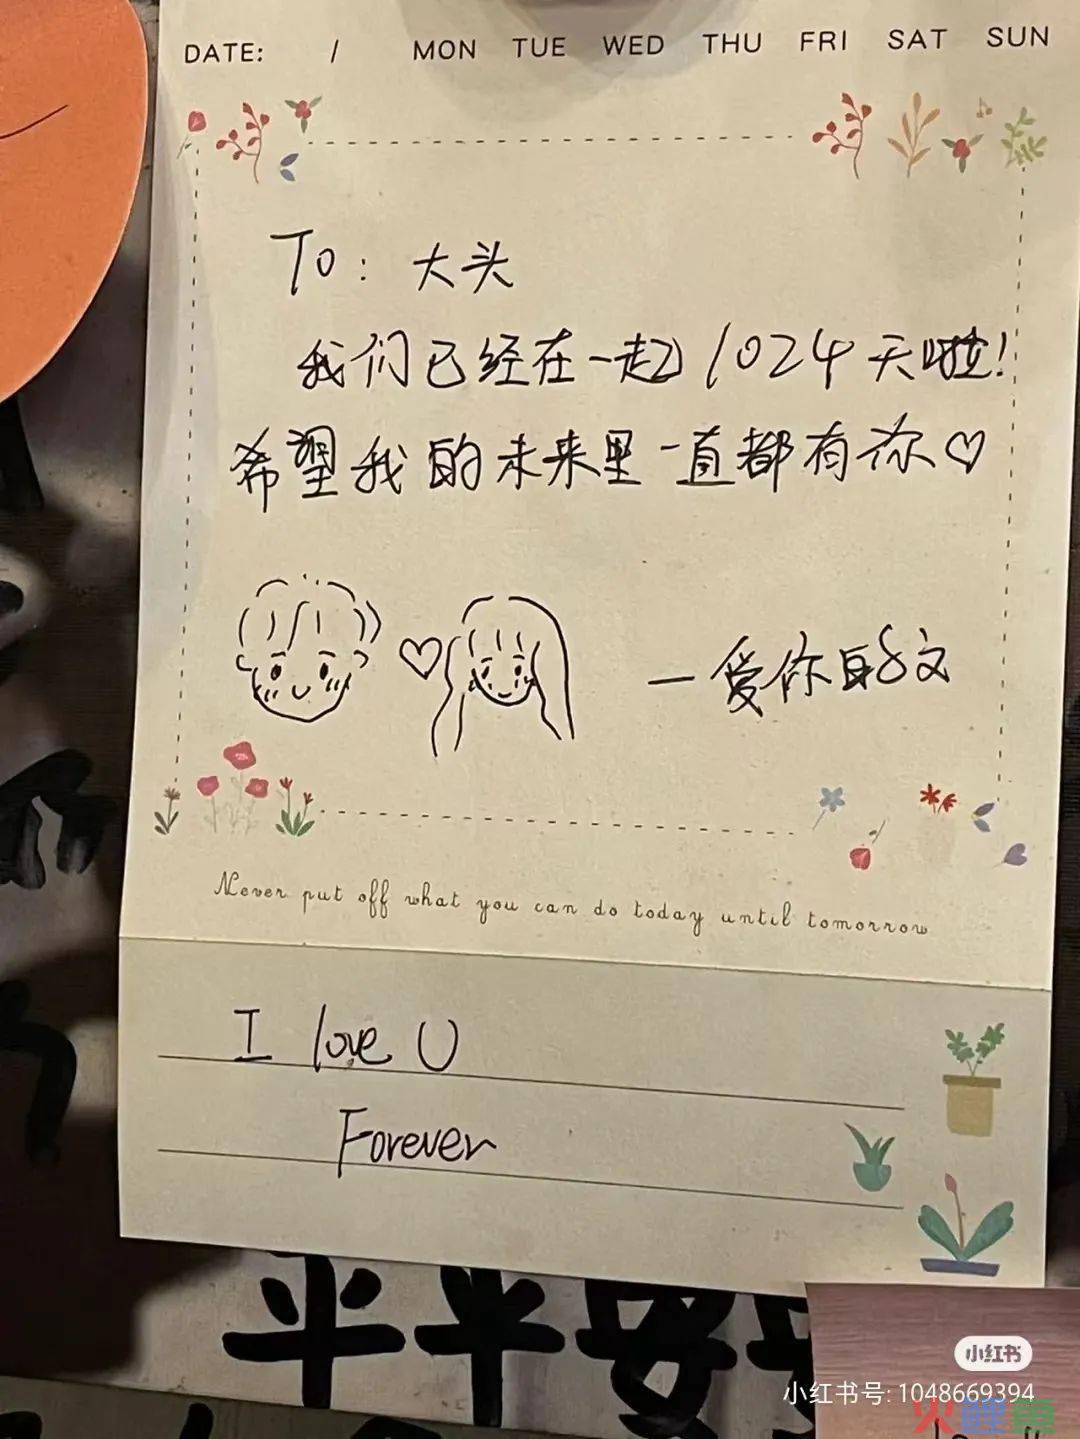 DATE: / MON TUE WED THU FRI SAT SUN
To: 大头
我们已经在一起1024天啦!
希望我的未来里一直都有你♡
一爱你的文
Never put off what you can do today until tomorrow
I love U
Forever
平平安
小红书
小红书号: 1048669394
火鲤鱼